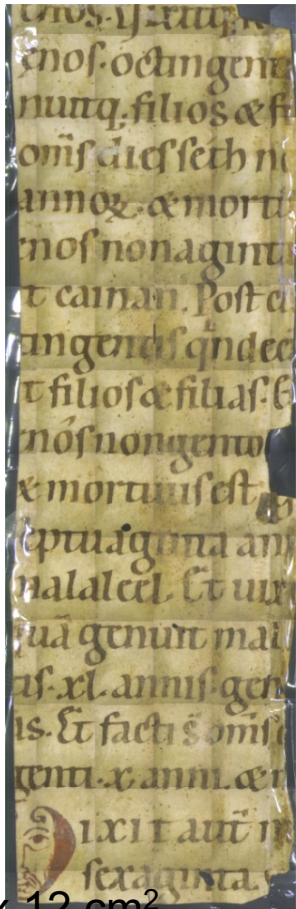 enos. octingent
nuitq; filios & fi
om̄s dies seth n
annoꝝ. & mort
enos nonagint
t cainan. Post c
ingentis q̄ndec
t filios & filias. E
enos nongento
& mortuus est
eptuaginta an
malaleel. Et uix
quā genuit mal
is. xl. annis. gen
is. Et facti s̄ om̄s
genti. x. anni. &
ixit aut̄
sexaginta
x 12 cm²